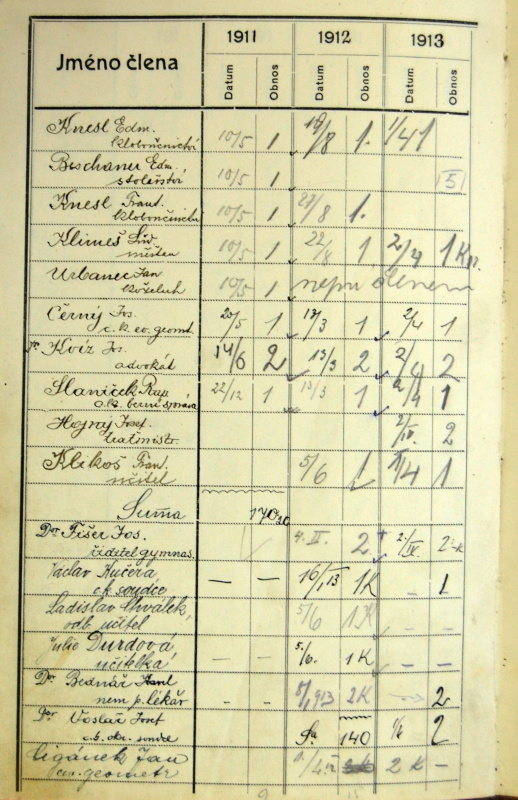 Jméno člena 1911 1912 1913
Datum Obnos Datum Obnos Datum Obnos
Knesl Edm. 10/5 1 19/8 1. 1/4 1
kloboučnictví
Beschanu Edm. 10/5 1 5
stolařství
Knesl Frant. 10/5 1 27/8 1.
kloboučnictví
Klimeš 10/5 1 22/8 1 2/4 1 K
měšťan
Urbanec Jan 10/5 1 není členem
koželuh
Černý Jos. 20/5 1 17/3 1 2/4 1
c. k. ev. geomt.
Dr Kvíz Jos. 14/6 2 13/3 2 2/4 2
advokát
Slaníček Ray. 22/12 1 13/3 1 2/4 1
c. k. berní správa
Hojný Josef 2/IV. 2
Klikoš Frant. 5/6 1 1/4 1
učitel
Suma 170
Dor Fišer Jos. 4. II. 2 2/IV. 2 K
ředitel gymnas.
Václav Kučera, — — 16/1 13 1K – 1
c. k. soudce
Ladislav Chválek, 5/6 1 K
odb. učitel
Julie Durdová, – – 5/6. 1 K – –
učitelka
Dr. Bednář Karel - - 5/1 913 2K 2
nem p. lékař
Dor Voslář Josef Sa 140 1/6 2
c. k. okr. soudce
Cigánek Jan 2 K –
ev. geometr